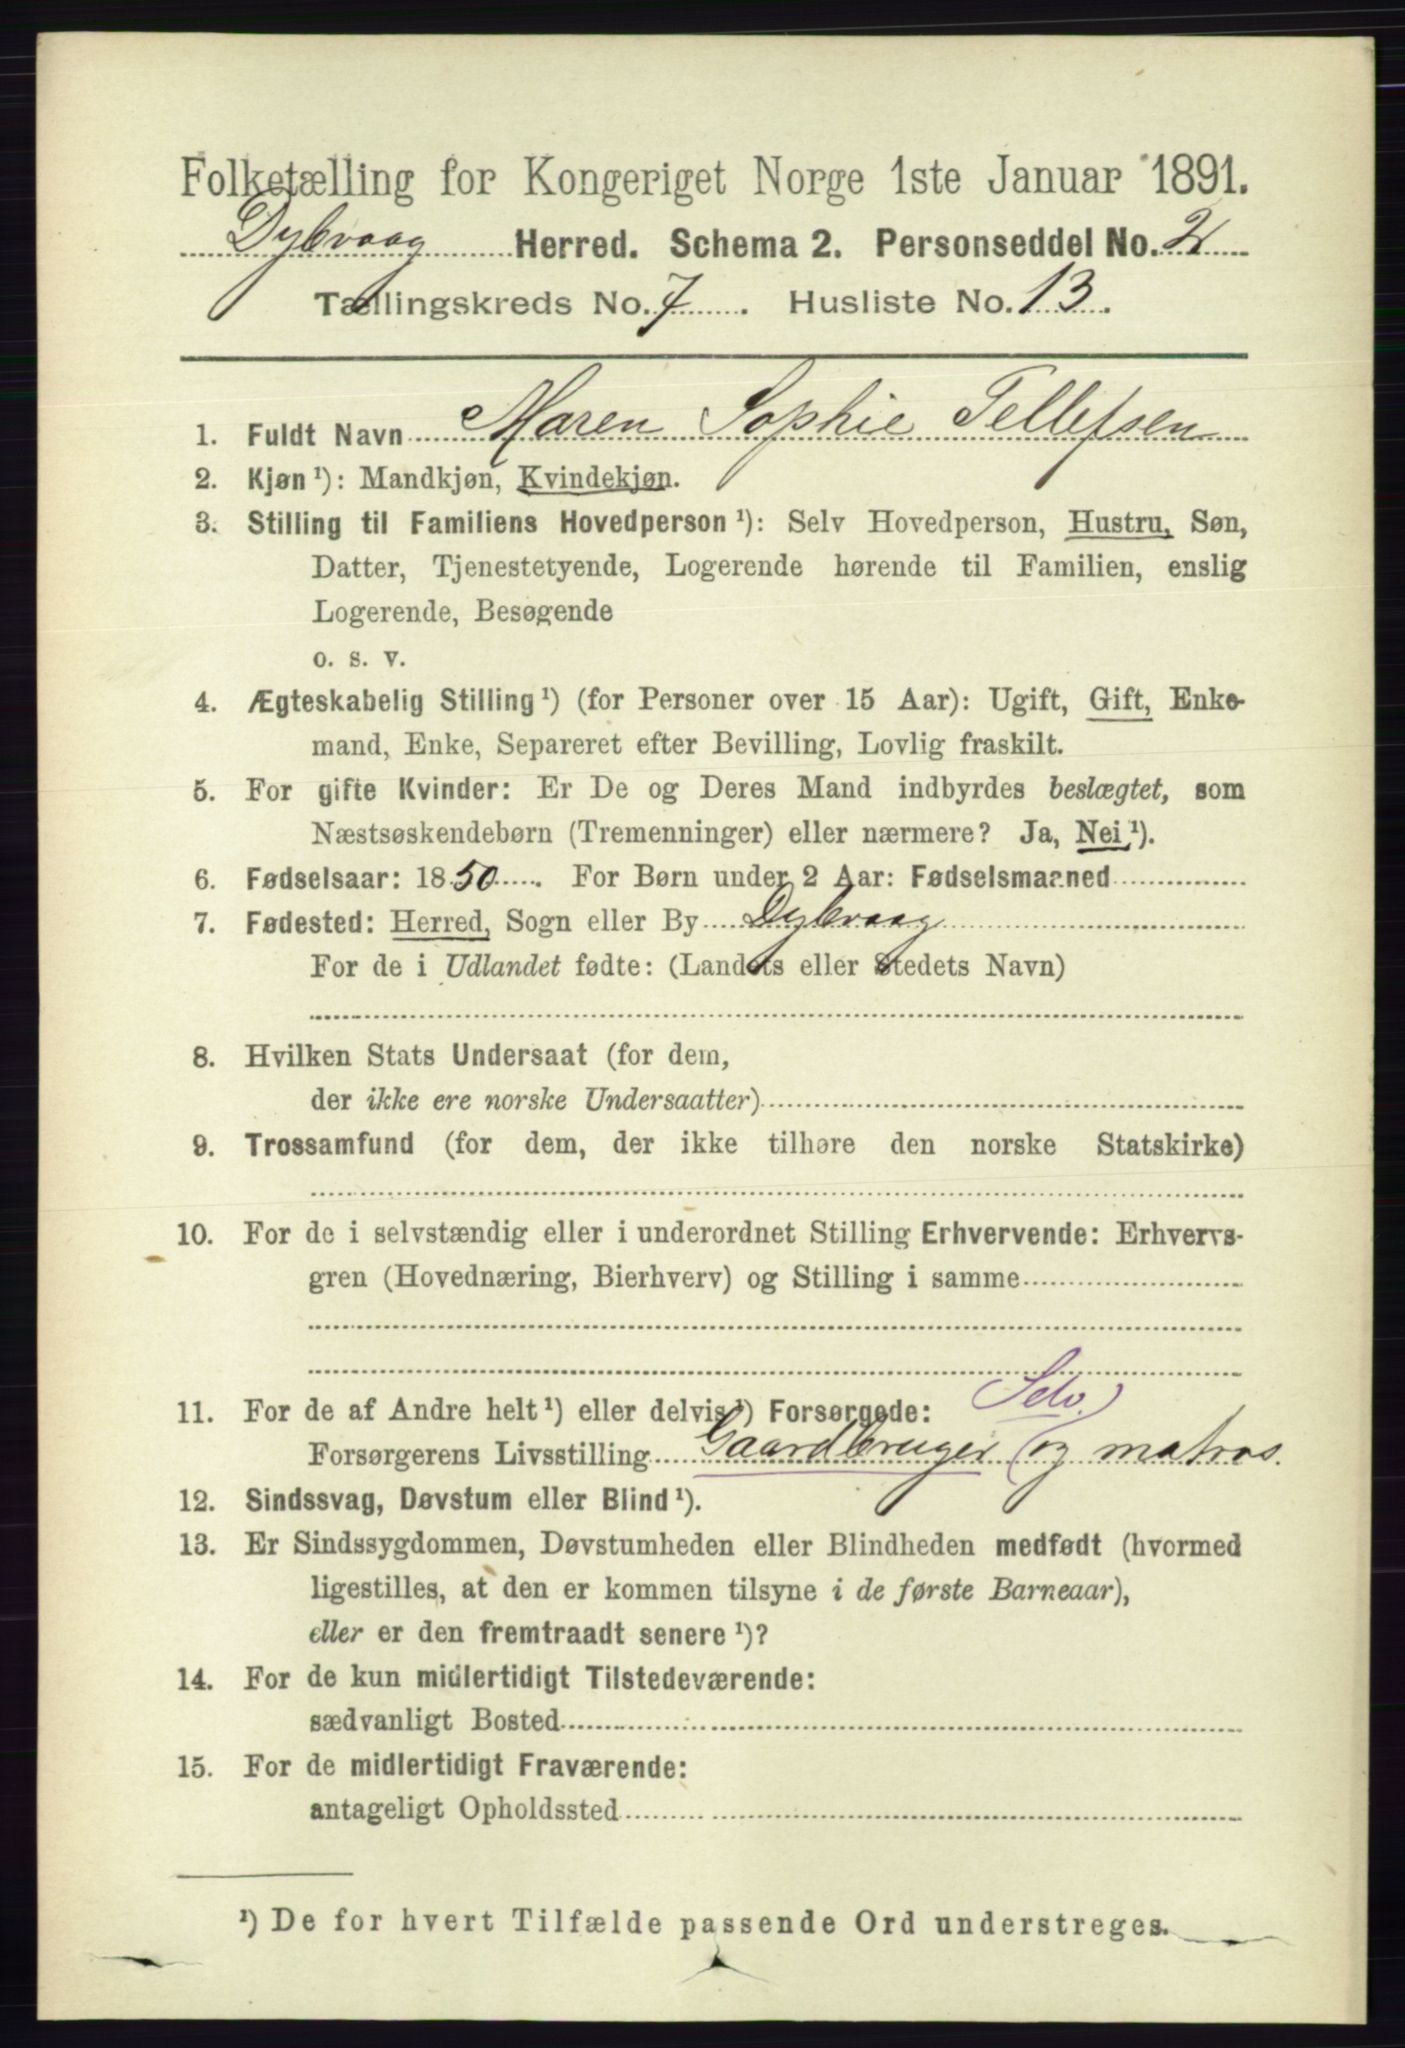 Folketælling for Kongeriget Norge 1ste Januar 1891.
Dybvaag Herred. Schema 2. Personseddel No. 2
Tællingskreds No. 7. Husliste No. 13.
1. Fuldt Navn Maren Sophie Tellefsen
2. Kjøn ¹): Mandkjøn, Kvindekjøn.
3. Stilling til Familiens Hovedperson ¹): Selv Hovedperson, Hustru, Søn,
Datter, Tjenestetyende, Logerende hørende til Familien, enslig
Logerende, Besøgende
o. s. v.
4. Ægteskabelig Stilling ¹) (for Personer over 15 Aar): Ugift, Gift, Enke-
mand, Enke, Separeret efter Bevilling, Lovlig fraskilt.
5. For gifte Kvinder: Er De og Deres Mand indbyrdes beslægtet, som
Næstsøskendebørn (Tremenninger) eller nærmere? Ja, Nei ¹).
6. Fødselsaar: 1850. For Børn under 2 Aar: Fødselsmaaned
7. Fødested: Herred, Sogn eller By Dybvaag
For de i Udlandet fødte: (Landets eller Stedets Navn)
8. Hvilken Stats Undersaat (for dem,
der ikke ere norske Undersaatter)
9. Trossamfund (for dem, der ikke tilhøre den norske Statskirke)
10. For de i selvstændig eller i underordnet Stilling Erhvervende: Erhvervs-
gren (Hovednæring, Bierhverv) og Stilling i samme
Selv.
11. For de af Andre helt ¹) eller delvis ¹) Forsørgede:
Forsørgerens Livsstilling Gaardbruger (og matros.)
12. Sindssvag, Døvstum eller Blind ¹).
13. Er Sindssygdommen, Døvstumheden eller Blindheden medfødt (hvormed
ligestilles, at den er kommen tilsyne i de første Barneaar),
eller er den fremtraadt senere ¹)?
14. For de kun midlertidigt Tilstedeværende:
sædvanligt Bosted
15. For de midlertidigt Fraværende:
antageligt Opholdssted
¹) De for hvert Tilfælde passende Ord understreges.